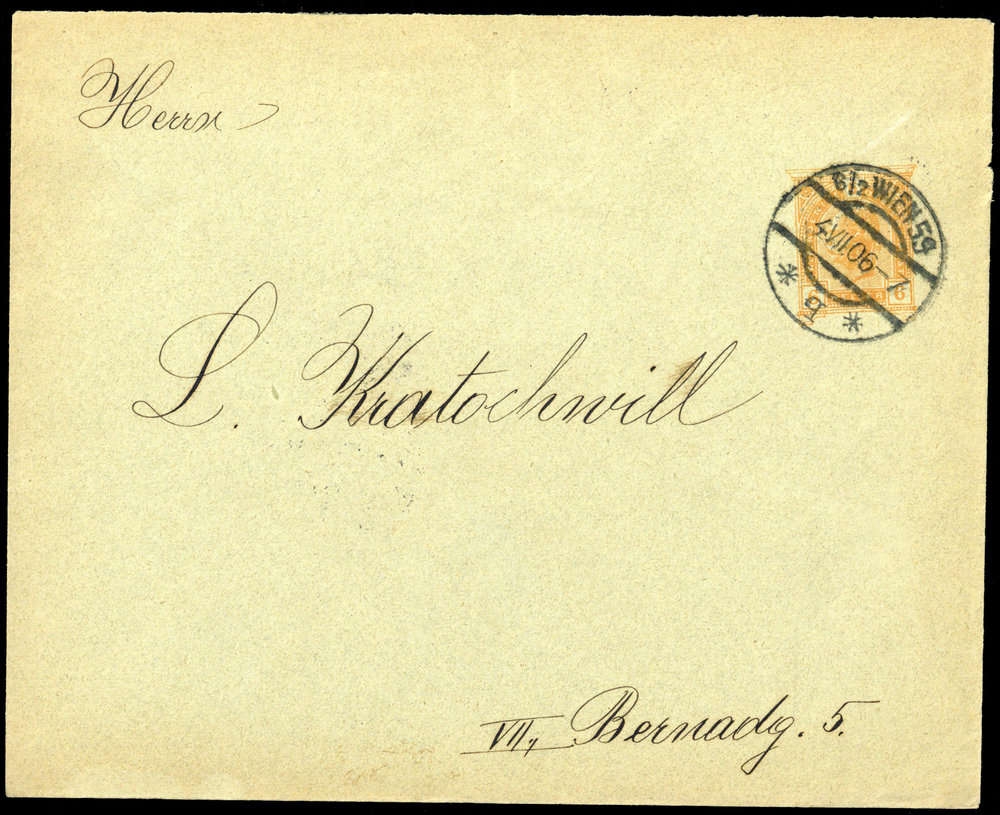 Herrn
6/2 WIEN 59
4.VII.06-7
* b *
6
L. Kratochwill
VII., Bernadg. 5.